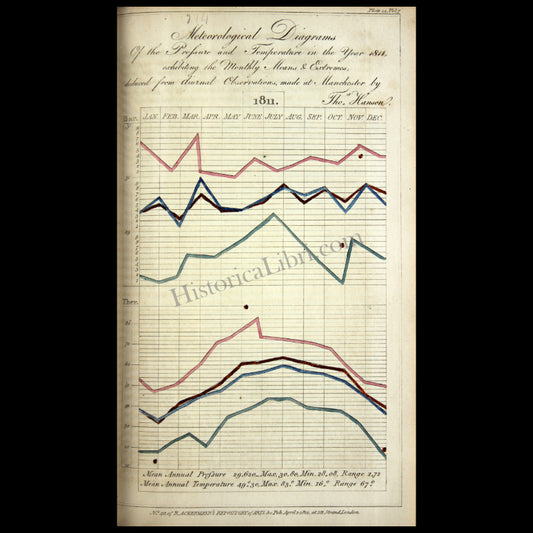 Plate 24, Vol. 7
Meteorological Diagrams
Of the Pressure and Temperature in the Year 1811,
exhibiting the Monthly Means & Extremes,
deduced from diurnal Observations, made at Manchester by
1811. Thos. Hanson.
Bar.
JAN. FEB. MAR. APR. MAY JUNE JULY AUG. SEP. OCT. NOV. DEC.
HistoricaLibri.com
Ther.
Mean Annual Pressure 29,620. Max. 30,80, Min. 28,08, Range 2,72
Mean Annual Temperature 49°,50, Max. 83°, Min. 16°, Range 67°.
of R. ACKERMANN'S REPOSITORY of ARTS &c. Pub. April 1, 1812, at 101, Strand, London.